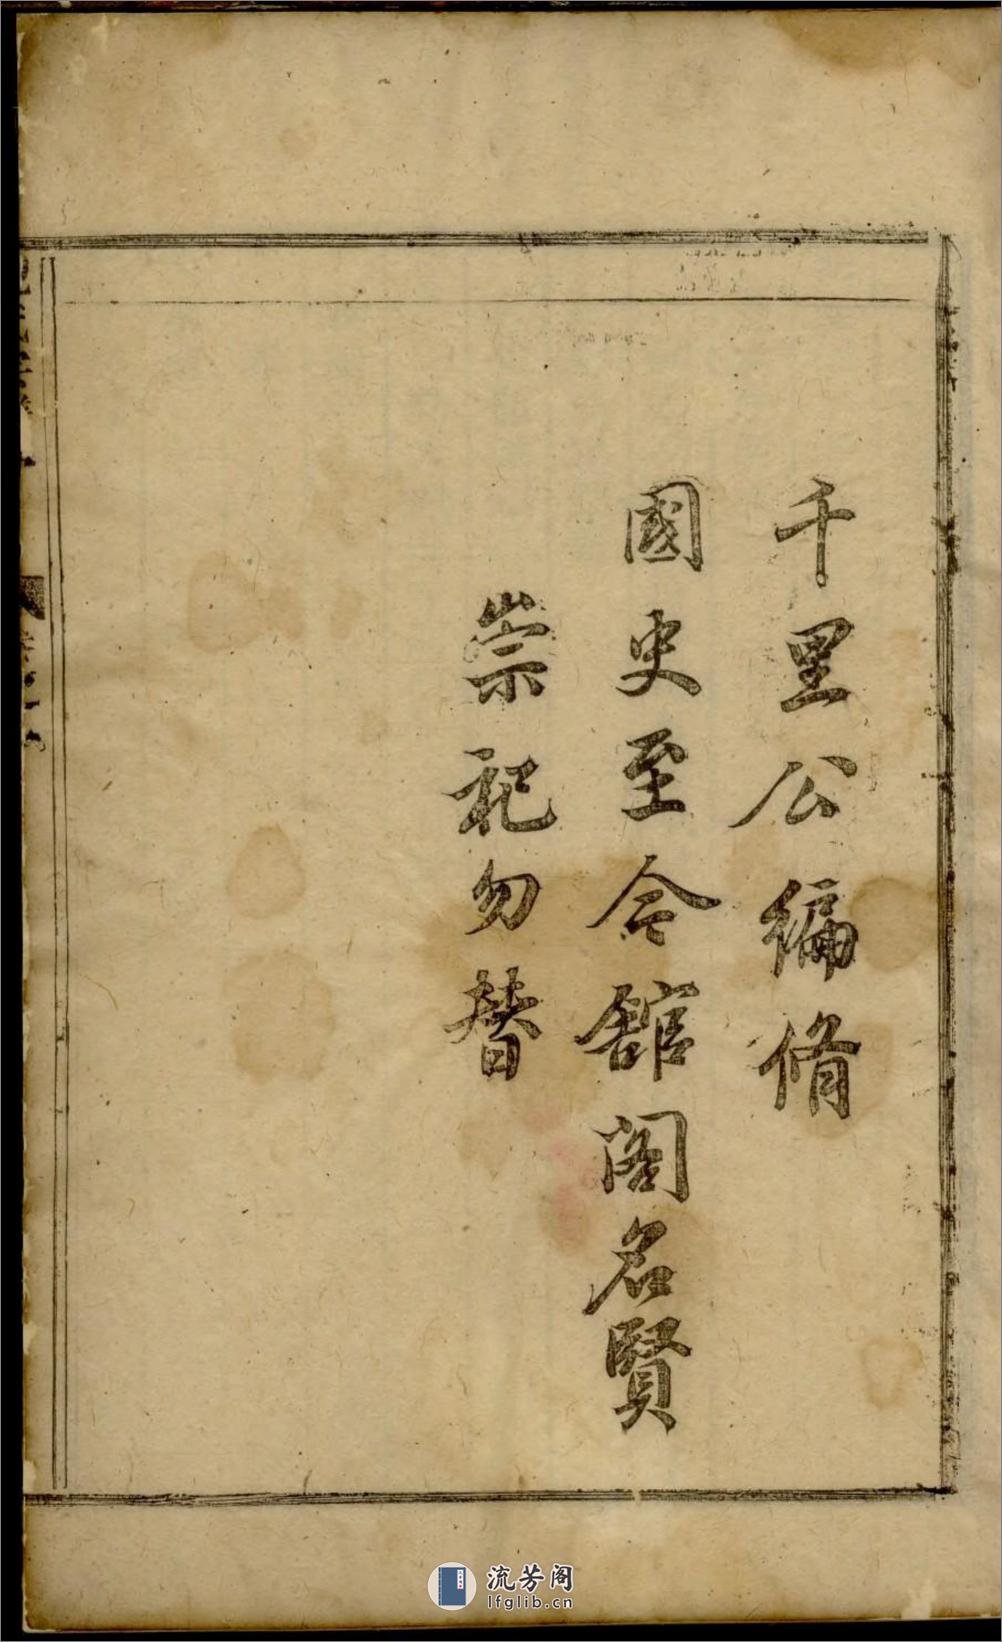 千里公編脩
國史至今舘閣名賢
崇祀勿替
流芳阁
lfglib.cn